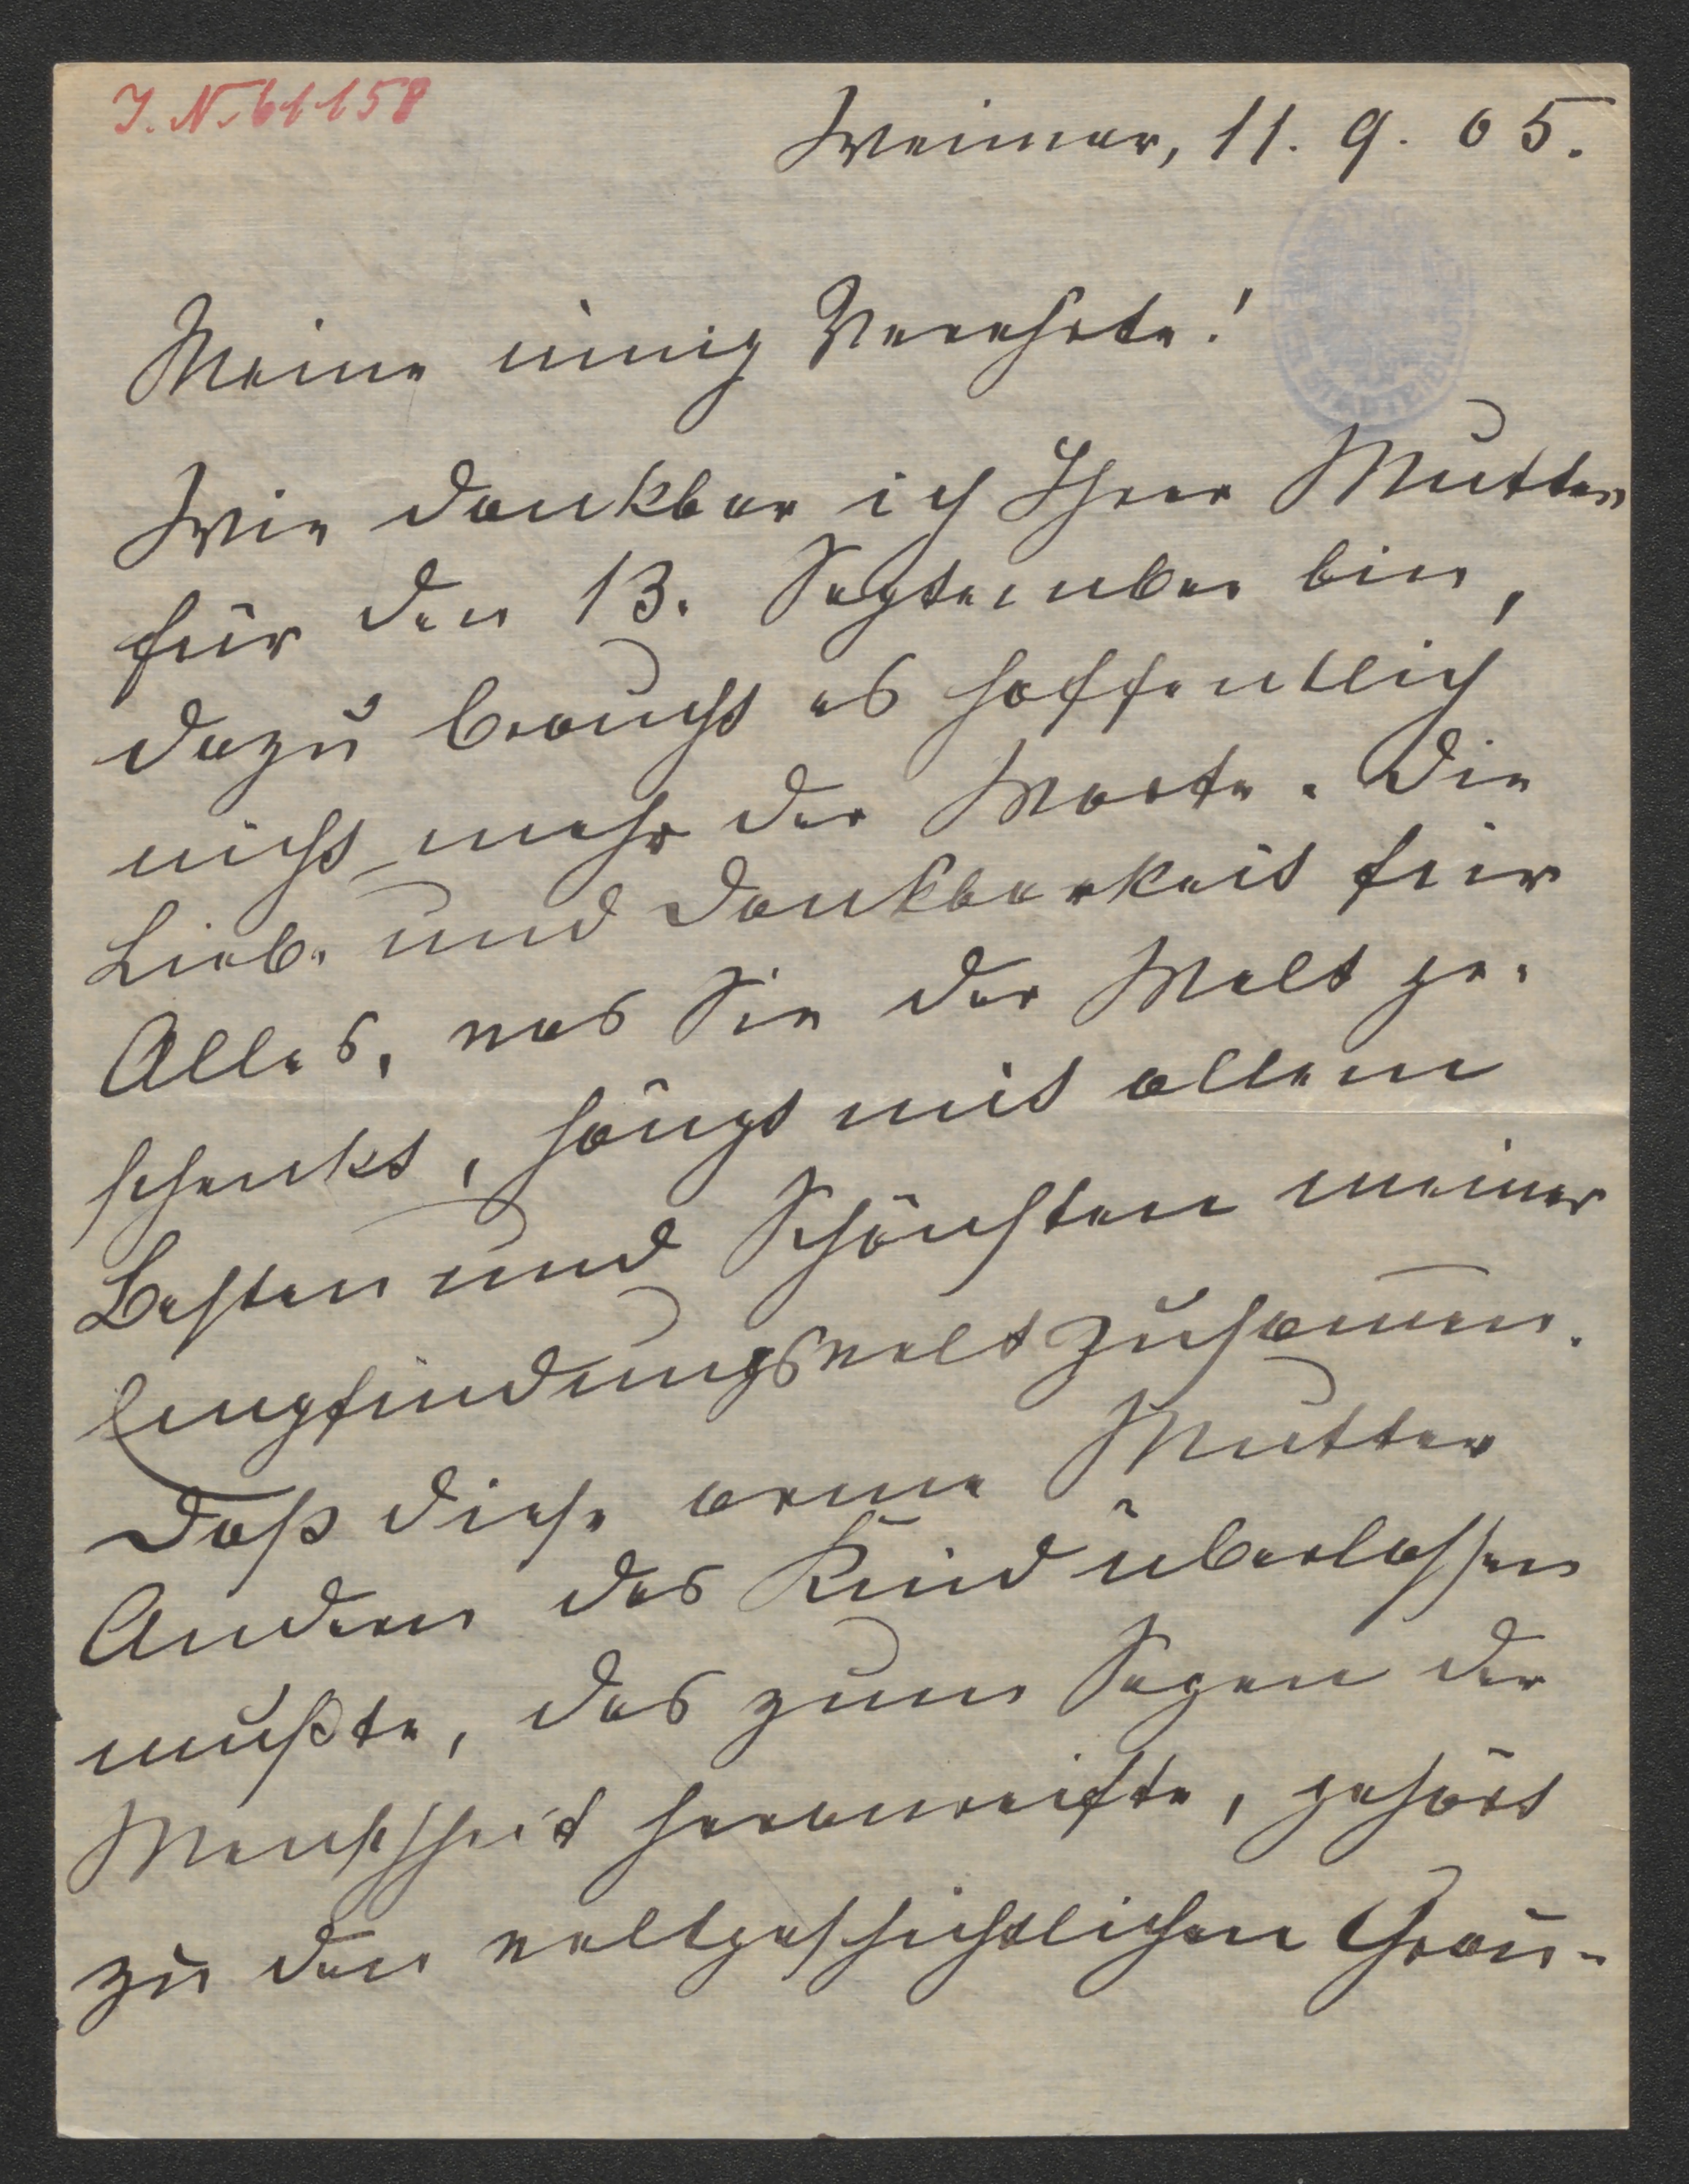 I. N. 61158
Weimar, 11. 9. 05.
Meine innig Verehrte!
Wie dankbar ich Ihrer Mutter
für den 13. September bin,
dazu braucht es hoffentlich
nicht mehr der Worte. Die
Liebe und Dankbarkeit für
Alles, was Sie der Welt ge-
schenkt, hängt mit allem
Besten und Schönsten meiner
Empfindungswelt zusam̅en.
Daß diese arme Mutter
Andern das Kind überlassen
mußte, das zum Segen der
Menschheit heranreifte, gehört
zu den weltgeschichtlichen Grau-